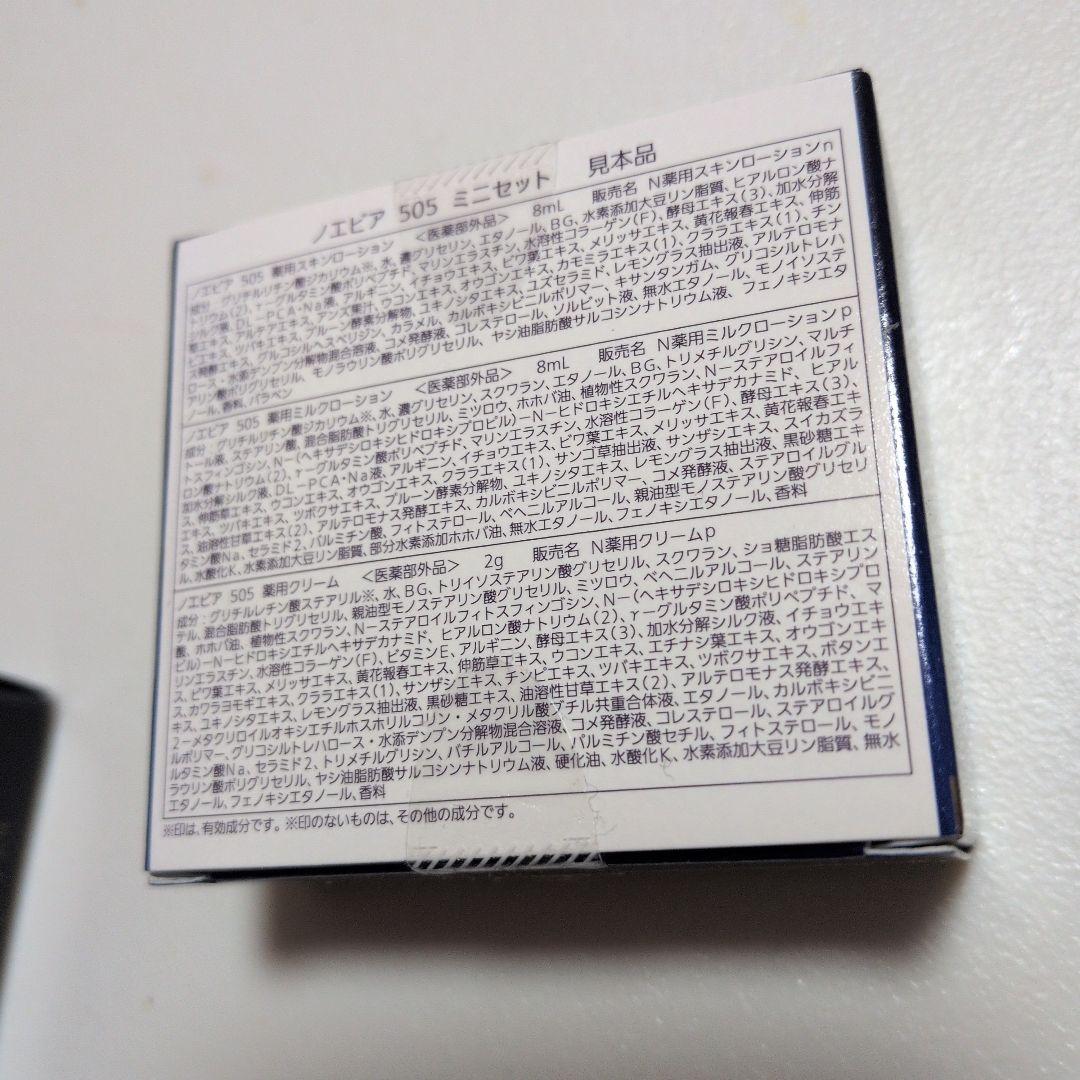 ノエビア 505 ミニセット 見本品
ノエビア 505 薬用スキンローション <医薬部外品> 8mL 販売名 N薬用スキンローションn
成分:グリチルリチン酸ジカリウム※、水、濃グリセリン、エタノール、BG、水素添加大豆リン脂質、ヒアルロン酸ナ
トリウム(2)、γ-グルタミン酸ポリペプチド、マリンエラスチン、水溶性コラーゲン(F)、酵母エキス(3)、加水分解
シルク液、DL-PCA・Na液、アルギニン、イチョウエキス、ビワ葉エキス、メリッサエキス、黄花報春エキス、伸筋
草エキス、アルテアエキス、アンズ果汁、ウコンエキス、オウゴンエキス、カモミラエキス(1)、クララエキス(1)、チン
ピエキス、ツバキエキス、プルーン酵素分解物、ユキノシタエキス、ユズセラミド、レモングラス抽出液、アルテロモナ
ス発酵エキス、グルコシルヘスペリジン、カラメル、カルボキシビニルポリマー、キサンタンガム、グリコシルトレハ
ロース・水添デンプン分解物混合溶液、コメ発酵液、コレステロール、ソルビット液、無水エタノール、モノイソステ
アリン酸ポリグリセリル、モノラウリン酸ポリグリセリル、ヤシ油脂肪酸サルコシンナトリウム液、フェノキシエタ
ノール、香料、パラベン
ノエビア 505 薬用ミルクローション <医薬部外品> 8mL 販売名 N薬用ミルクローションp
成分:グリチルリチン酸ジカリウム※、水、濃グリセリン、スクワラン、エタノール、BG、トリメチルグリシン、マルチ
トール液、ステアリン酸、混合脂肪酸トリグリセリル、ミツロウ、ホホバ油、植物性スクワラン、N-ステアロイルフィ
トスフィンゴシン、N-(ヘキサデシロキシヒドロキシプロピル)-N-ヒドロキシエチルヘキサデカナミド、ヒアル
ロン酸ナトリウム(2)、γ-グルタミン酸ポリペプチド、マリンエラスチン、水溶性コラーゲン(F)、酵母エキス(3)、
加水分解シルク液、DL-PCA・Na液、アルギニン、イチョウエキス、ビワ葉エキス、メリッサエキス、黄花報春エキ
ス、伸筋草エキス、ウコンエキス、オウゴンエキス、クララエキス(1)、サンゴ草抽出液、サンザシエキス、スイカズラ
エキス、ツバキエキス、ツボクサエキス、プルーン酵素分解物、ユキノシタエキス、レモングラス抽出液、黒砂糖エキ
ス、油溶性甘草エキス(2)、アルテロモナス発酵エキス、カルボキシビニルポリマー、コメ発酵液、ステアロイルグル
タミン酸Na、セラミド2、パルミチン酸、フィトステロール、ベヘニルアルコール、親油型モノステアリン酸グリセリ
ル、水酸化K、水素添加大豆リン脂質、部分水素添加ホホバ油、無水エタノール、フェノキシエタノール、香料
ノエビア 505 薬用クリーム <医薬部外品> 2g 販売名 N薬用クリームp
成分:グリチルレチン酸ステアリル※、水、BG、トリイソステアリン酸グリセリル、スクワラン、ショ糖脂肪酸エス
テル、混合脂肪酸トリグリセリル、親油型モノステアリン酸グリセリル、ミツロウ、ベヘニルアルコール、ステアリン
酸、ホホバ油、植物性スクワラン、N-ステアロイルフィトスフィンゴシン、N-(ヘキサデシロキシヒドロキシプロ
ピル)-N-ヒドロキシエチルヘキサデカナミド、ヒアルロン酸ナトリウム(2)、γ-グルタミン酸ポリペプチド、マ
リンエラスチン、水溶性コラーゲン(F)、ビタミンE、アルギニン、酵母エキス(3)、加水分解シルク液、イチョウエキ
ス、ビワ葉エキス、メリッサエキス、黄花報春エキス、伸筋草エキス、ウコンエキス、エチナシ葉エキス、オウゴンエキ
ス、カワラヨモギエキス、クララエキス(1)、サンザシエキス、チンピエキス、ツバキエキス、ツボクサエキス、ボタンエ
キス、ユキノシタエキス、レモングラス抽出液、黒砂糖エキス、油溶性甘草エキス(2)、アルテロモナス発酵エキス、
2-メタクリロイルオキシエチルホスホリルコリン・メタクリル酸ブチル共重合体液、エタノール、カルボキシビニ
ルポリマー、グリコシルトレハロース・水添デンプン分解物混合溶液、コメ発酵液、コレステロール、ステアロイルグ
ルタミン酸Na、セラミド2、トリメチルグリシン、バチルアルコール、パルミチン酸セチル、フィトステロール、モノ
ラウリン酸ポリグリセリル、ヤシ油脂肪酸サルコシンナトリウム液、硬化油、水酸化K、水素添加大豆リン脂質、無水
エタノール、フェノキシエタノール、香料
※印は、有効成分です。※印のないものは、その他の成分です。